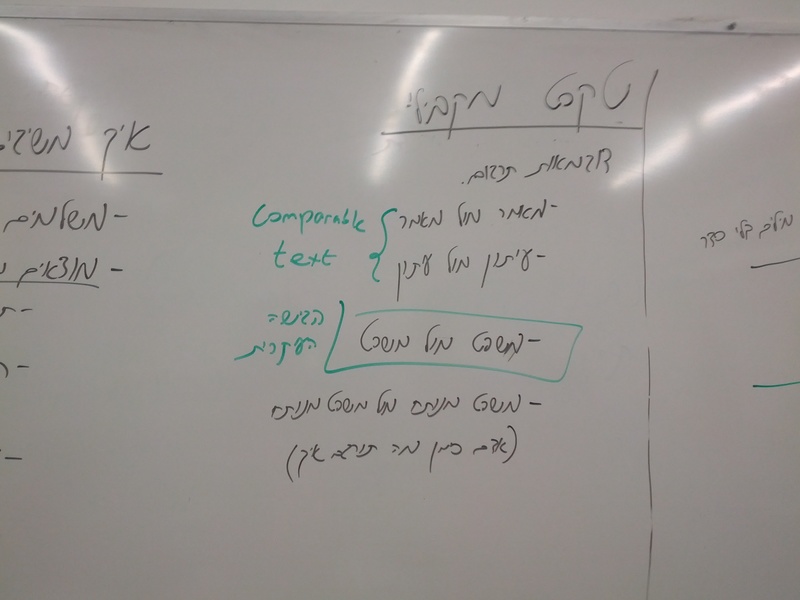 טקסט מקבילי
דוגמאות תרגום.
- מאמר מול מאמר
- עיתון מול עיתון
Comparable
text
- משפט מול משפט
הגישה
העיקרית
- משפט מנותח מול משפט מנותח
(אדם סימן מה תורגם איך)
איך
- משלמים
- מוצאים
מילים בלי סדר